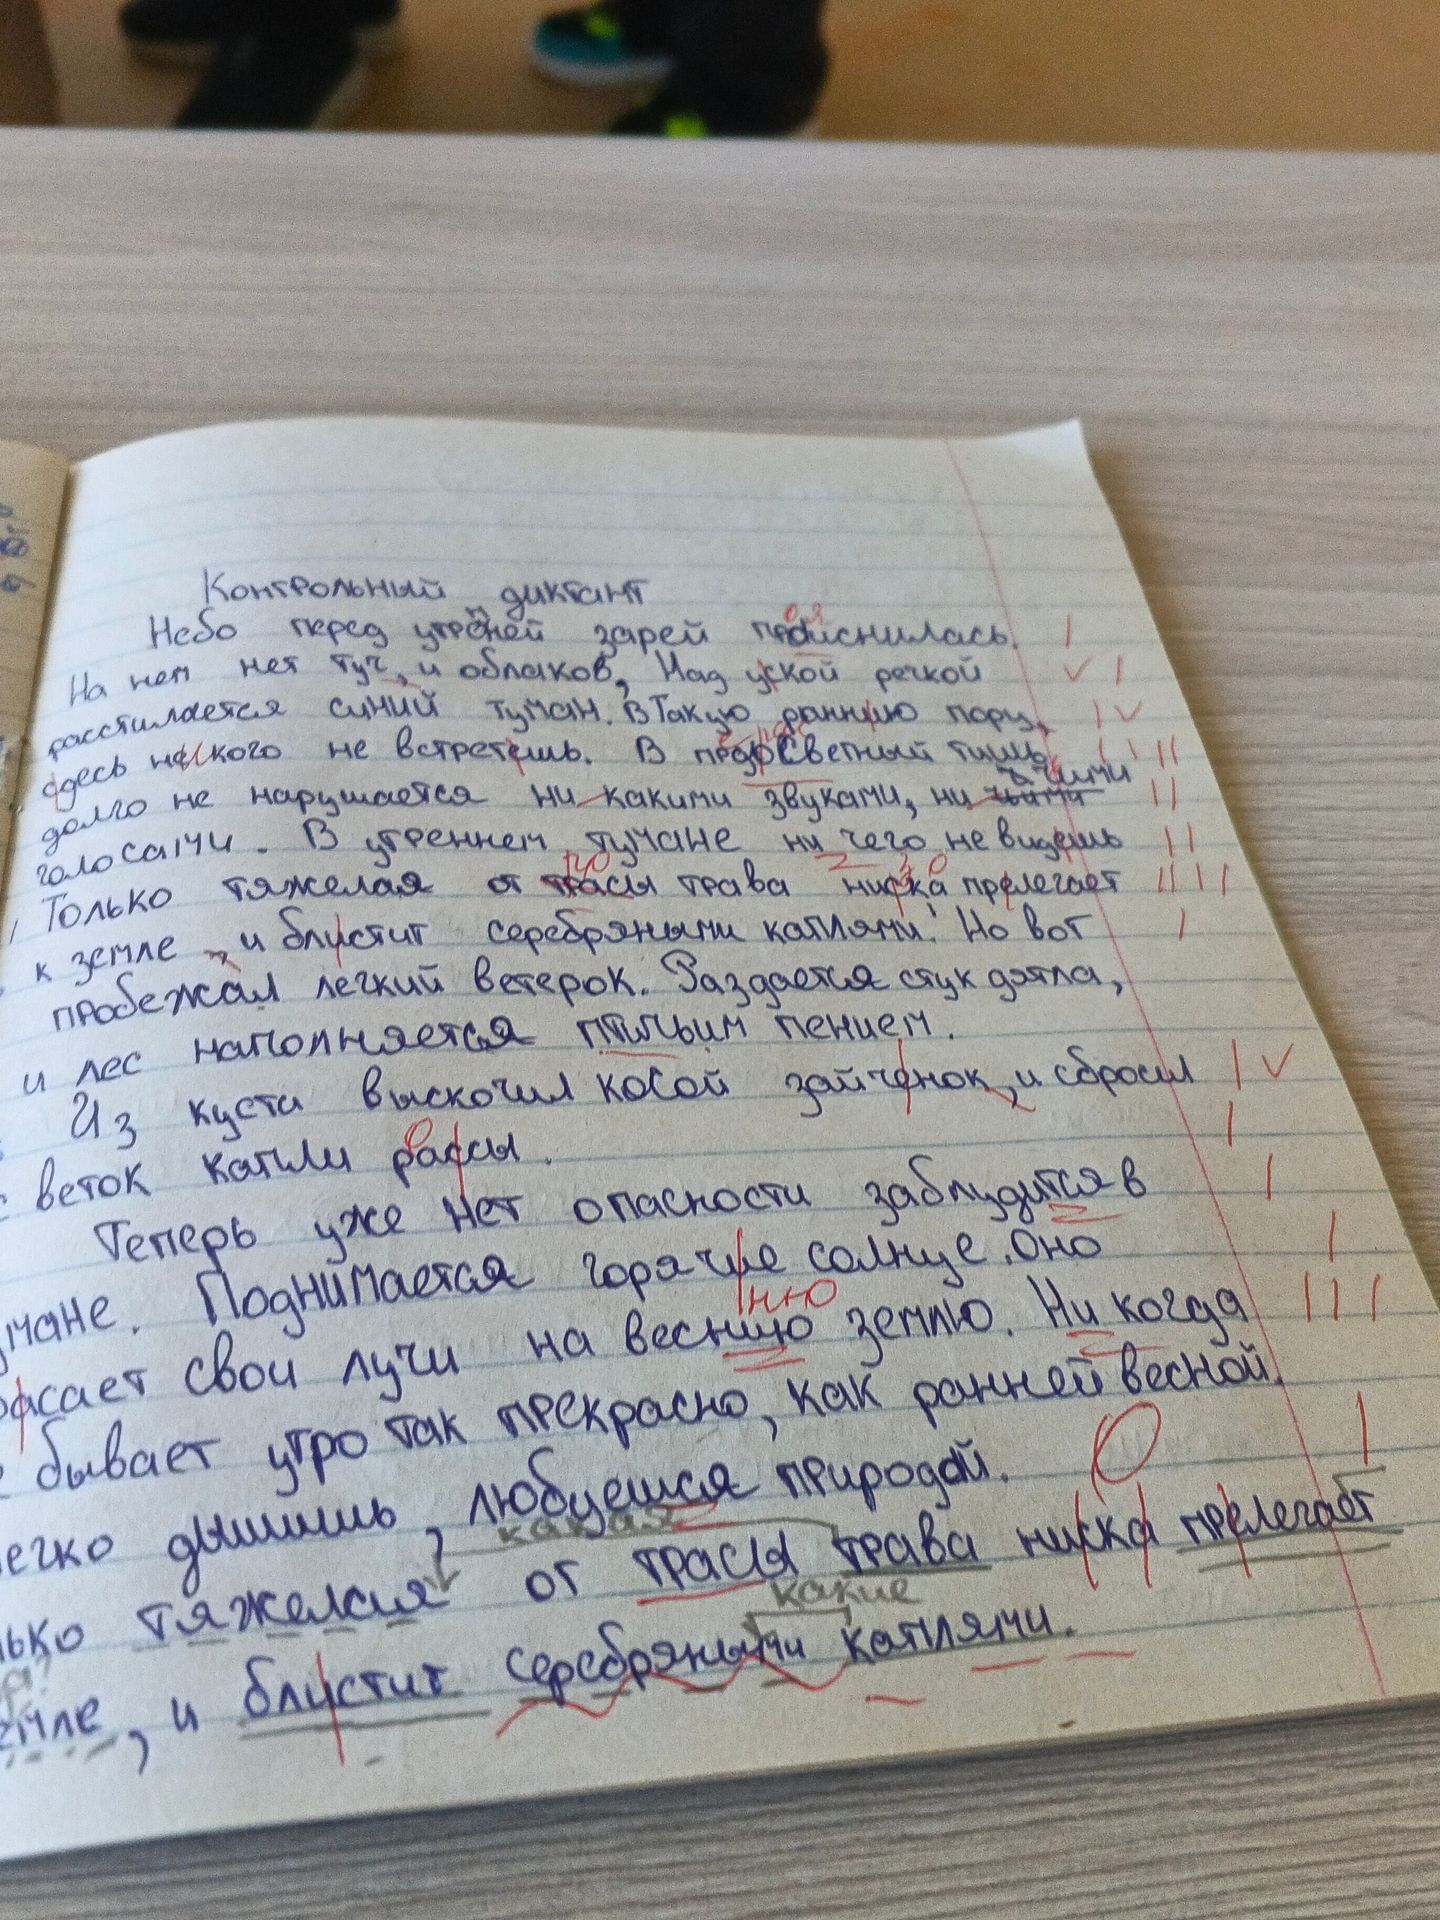 Контрольный диктант
Небо перед утреней зарей происнилась.
На нем нет туч, и облаков, Над уской речкой
расстилается синий туман. В такую раннию пору,
сдесь никого не встретишь. В предрасветный тишь
долго не нарушается ни какими звуками, ни чьими
голосами. В утреннем тумане ни чего не видешь
Только тяжелая от трасы трава ниска прелегает
к земле, и блистит серебряными каплями. Но вот
пробежал легкий ветерок. Раздается стук дятла,
и лес наполняется птичьим пением.
Из куста выскочил косой зайченок, и сбросил
с веток капли рассы.
Теперь уже нет опасности заблудится в
мане. Поднимается горячие солнце. Оно
расает свои лучи на веснщю землю. Ни когда
бывает утро так прекрасно, как ранней весной.
егко дышишь, любуешся природой. О
какая
лько тяжелая от трасы трава ниска прелегает
какие
емле, и блистит серебряными каплями.